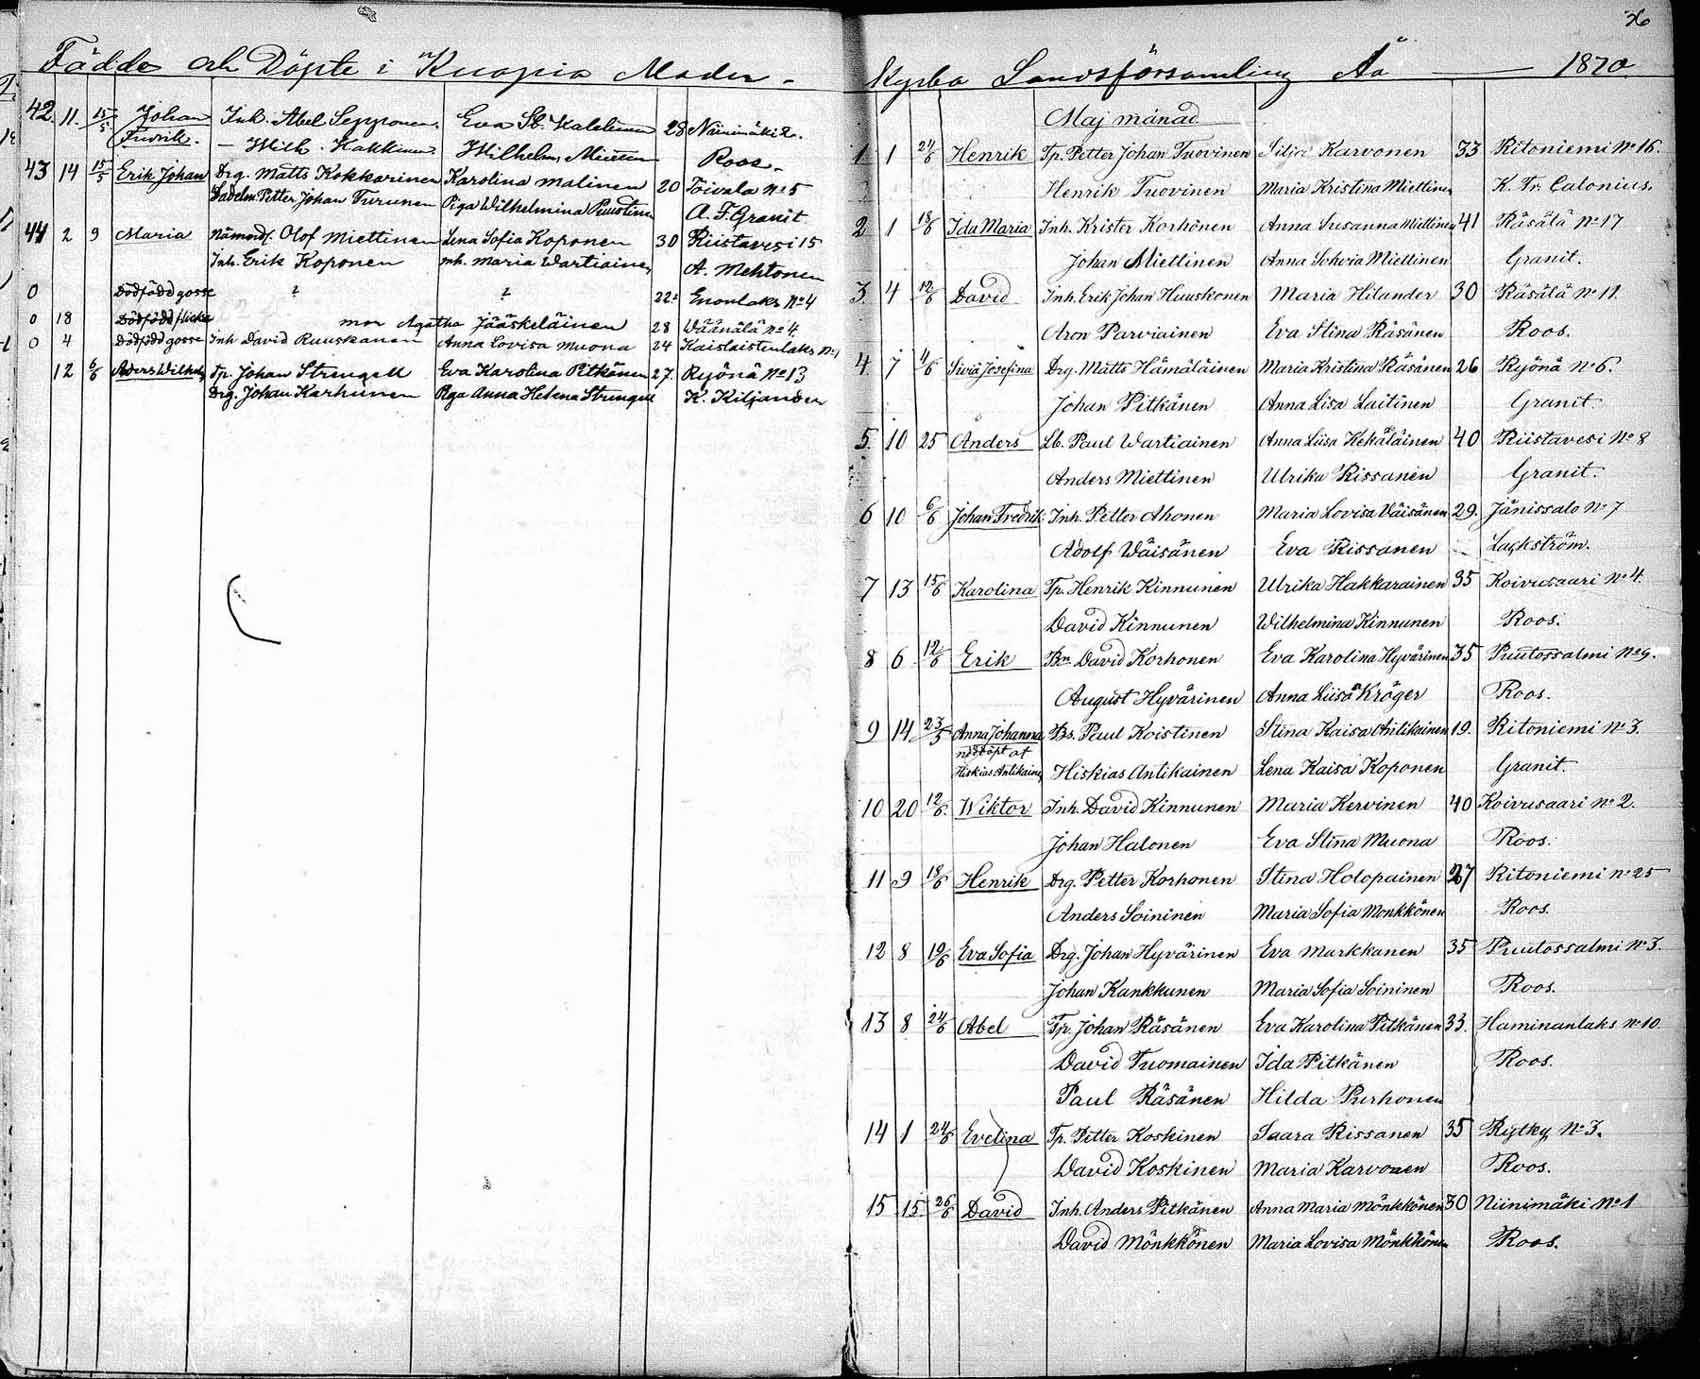 Födde och Döpte i Kuopio Moder-
42. 11. 15/5 Johan Inh. Abel Sepponen. Eva St. 28 Niinimäki 2.
Fredrik. - Wilh. Kakkinen Wilhelm. Roos.
43 14 15/5 Erik Johan Drg. Matts Kokkarinen Karolina Malinen 20 Toivala No 5
Petter Johan Turunen Piga Wilhelmina Puustinen A. F. Granit
44 2 9 Maria Nämndsm. Olof Miettinen Lena Sofia Koponen 30 Riistavesi 15
Inh. Erik Koponen mh. Maria Wartiainen A. Mehtonen
0 Dödfödd gosse ? ? 22. Enonlaks No 4
0 18 Dödfödd flicka mor Agatha Jääskeläinen 28 Wäänälä No 4
0 4 Dödfödd gosse Inh David Ruuskanen Anna Lovisa Muona 24 Kaislastenlaks No 1
12 6/6 Anders Wilhelm Tp. Johan Strengell Eva Karolina Pitkänen 27. Ryönä No 13
Drg. Johan Karhunen Pga Anna Helena Strengell K. Kiljander
26
Kyrko Landsförsamling År 1870
Maj månad
1 1 24/6 Henrik Tp. Petter Johan Tuovinen Silja Karvonen 33 Ritoniemi No 16.
Henrik Tuovinen Maria Kristina Miettinen K. Fr. Calonius.
2 1 18/6 Ida Maria Inh. Krister Korhonen Anna Susanna Miettinen 41 Räsälä No 17
Johan Miettinen Anna Sohvia Miettinen Granit.
3. 4 12/6 David Inh. Erik Johan Huuskonen Maria Hilander 30 Räsälä No 11.
Aron Parviainen Eva Stina Räsänen Roos.
4. 7 4/6 Siviä Josefina Drg. Matts Hämäläinen Maria Kristina Räsänen 26 Ryönä No 6.
Johan Pitkänen Anna Lisa Laitinen Granit.
5. 10 25 Anders Lb. Paul Wartiainen Anna Liisa Kekäläinen 40 Riistavesi No 8
Anders Miettinen Ulrika Rissanen Granit.
6 10 6/6 Johan Fredrik Inh. Petter Ahonen Maria Lovisa Väisänen 29. Jänissalo No 7
Adolf Wäisänen Eva Rissanen Lackström.
7 13 15/6 Karolina Tp. Henrik Kinnunen Ulrika Hakkarainen 35 Koivusaari No 4.
David Kinnunen Wilhelmina Kinnunen Roos.
8 6 12/6 Erik Bn David Korhonen Eva Karolina Hyvärinen 35 Puutossalmi No 9.
August Hyvärinen Anna Liisa Kröger Roos.
9 14 23/5 Anna Johanna Bs. Paul Koistinen Stina Kaisa Antikainen 19. Ritoniemi No 3.
nöddöpt af
Hiskias Antikainen Hiskias Antikainen Lena Kaisa Koponen Granit.
10 20 12/6. Wiktor Inh. David Kinnunen Maria Kervinen 40 Koivusaari No 2.
Johan Halonen Eva Stina Muona Roos.
11 9 18/6 Henrik Drg. Petter Korhonen Stina Holopainen 27 Ritoniemi No 25
Anders Soininen Maria Sofia Monkkönen Roos.
12 8 19/6 Eva Sofia Drg. Johan Hyvärinen Eva Markkanen 35 Puutossalmi No 3.
Johan Kankkunen Maria Sofia Soininen Roos.
13 8 24/6 Abel Tp. Johan Räsänen Eva Karolina Pitkänen 33. Haminanlaks No 10
David Tuomainen Ida Pitkänen Roos.
Paul Räsänen Hilda Purhonen
14 1 24/6 Evelina Tp. Petter Koskinen Saara Rissanen 35 Rytky No 3.
David Koskinen Maria Karvonen Roos.
15 15. 26/6 David Inh. Anders Pitkänen Anna Maria Mönkkönen 30 Niinimäki No 1
David Mönkkönen Maria Lovisa Mönkkönen Roos.